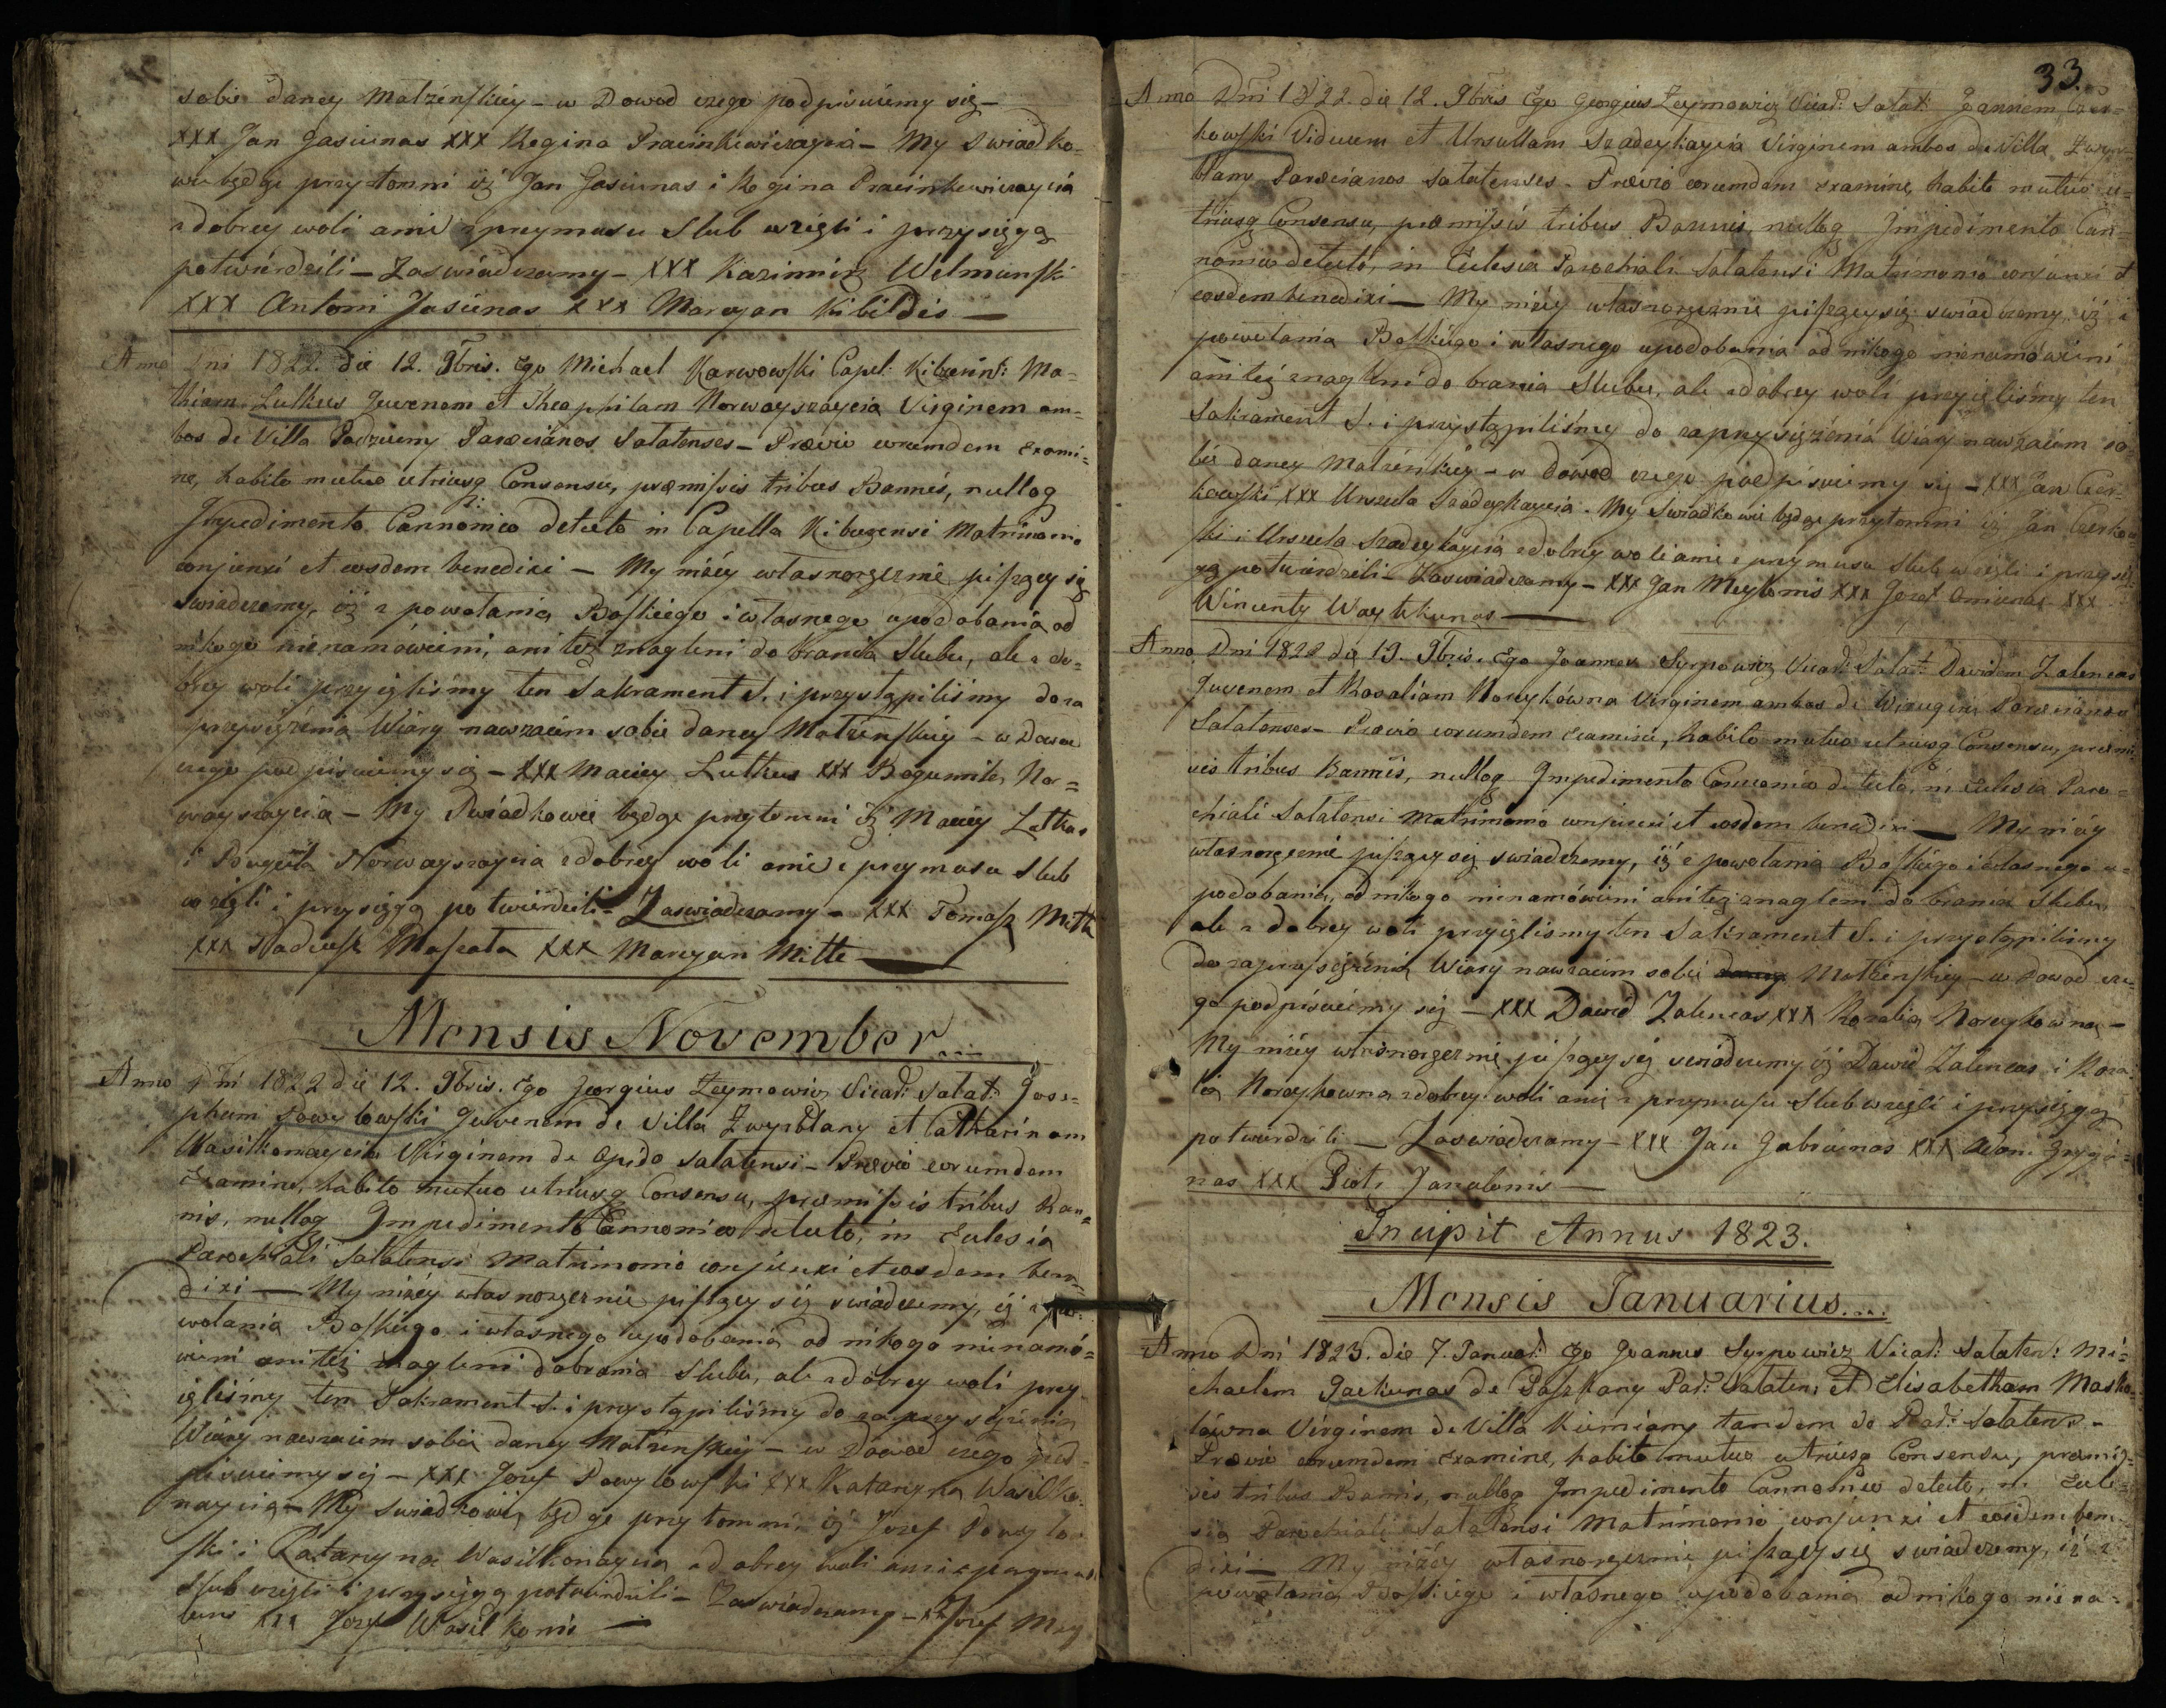 sobie daney Matzeńskiey – w Dowod czego podpisuiemy się –
XXX Jan Jasiunas XXX Regina Pracinkiewiczaycia – My Swiadko-
wie będąc przytomni iż Jan Jasiunas i Regina Pracinkiewiczaycia
z dobrey woli ani z przymusu Slub wzieli i przysięgą
potwierdzili – Zaswiadczamy – XXX Kazimierz Welmunski
XXX Antoni Jasiunas XXX Maryan Kibildis —
Anno Dni 1822. die 12. 9bris. Ego Michael Karwowski Capel: Ma-
thiam Lutkus Juvenem et Theophilam Norwayszaycia Virginem am-
bos de Villa Padzuemy Paroecianos Salatenses – Prævio eorumdem Exami-
ne, habito mutuo utriusq Consensu, præmissis tribus Bannis, nulloq
Impedimento Cannonico detecto in Capella Kiburensi Matrimonio
conjunxi et eosdem benedixi – My niżey własnoręcznie piszący się
swiadczemy, iż z powołania Boskiego i własnego upodobania od
nikogo nienamówieni, ani też znagleni do brania Slubu, ale z do-
brey woli przyieliśmy ten Sakrament S. i przystąpiliśmy do za
przysiężenia Wiary nawzaiem sobie daney Matzeńskiey – w Dowod
czego podpisuiemy się – XXX Maciey Lutkus XXX Bogumila Nor-
wayszaycia – My Swiadkowie będąc przytomni iż Maciey Lutkus
i Bogumila Norwayszaycia z dobrey woli ani z przymusu Slub
wzieli i przysięgą potwierdzili – Zaswiadczamy – XXX Tomasz Mitt
XXX Tadeusz Maszata XXX Maryan Mitte —
Mensis November...
Anno Dni 1822 die 12. 9bris. Ego Georgius Zeymowicz Vicar: Salat: Jose-
phum Powylowski Juvenem de Villa Zwyrblany et Catharinam
Wasilkonaycia Virginem de Opido Salatensi – Prævio eorumdem
Examine, habito mutuo utriusq Consensu, præmissis tribus Ban-
nis, nulloq Impedimento Cannonico detecto, in Eclesia
Parochiali Salatensi Matrimonio conjunxi et eosdem bene-
dixi — My niżey własnoręcznie piszący się swiadczemy, iż z po-
wołania Boskiego i własnego upodobania od nikogo nienamó-
wieni ani też znagleni do brania Slubu, ale z dobrey woli przy-
ieliśmy ten Sakrament S. i przystąpiliśmy do zaprzysiężenia
Wiary nawzaiem sobie daney Matzeńskiey – w Dowod czego pod-
pisuiemy się – XXX Jozef Powylowski XXX Katarzyna Wasilko-
naycia – My Swiadkowie będąc przytomni, iż Jozef Powylo-
ski i Katarzyna Wasilkonaycia z dobrey woli ani z przymusu
Slub wzieli i przysięgą potwierdzili – Zaswiadczamy – XX Jozef May
XXX Jozef Wasilkonis —
33.
Anno Dni 1822. die 12. 9bris Ego Georgius Zeymowicz Vicar: Salat: Joannem Czer-
kowski Viduum et Ursullam Szadeykaycia Virginem ambos de Villa Zwyr-
blany Paroecianos Salatenses. Prævio eorumdem examine, habito mutuo u-
triusq Consensu, præmissis tribus Bannis, nulloq Impedimento Can-
nonico detecto, in Eclesia Parochiali Salatensi Matrimonio conjunxi et
eosdem benedixi — My niżey własnoręcznie piszący się swiadczemy, iż z
powołania Boskiego i własnego upodobania od nikogo nienamówieni
ani też znagleni do brania Slubu, ale z dobrey woli przyieliśmy ten
Sakrament S. i przystąpiliśmy do zaprzysiężenia Wiary nawzaiem so-
bie daney Matzeńskiey – w Dowod czego podpisuiemy się – XXX Jan Czer-
kowski XXX Urszula Szadeykaycia. My Swiadkowie będąc przytomni iż Jan Czerkow-
ski i Urszula Szadeykaycia z dobrey woli ani z przymusu Slub wzieli i przysię-
gą potwierdzili – Zaswiadczamy – XXX Jan Meylonis XXX Jozef Oniunas XXX
Wincenty Waytekunas —
Anno Dni 1822 die 13. 9bris. Ego Joannes Syrpowicz Vicar: Salat: Davidem Zalencas
Juvenem et Rosaliam Noreykówna Virginem ambos de Paroecianos
Salatenses – Prævio eorumdem Examine, habito mutuo utriusq Consensu, præmis-
sis tribus Bannis, nulloq Impedimento Cannonico detecto, in Eclesia Paro-
chiali Salatensi Matrimonio conjunxi et eosdem benedixi — My niżey
własnoręcznie piszący się swiadczemy, iż z powołania Boskiego i własnego u-
podobania, od nikogo nienamówieni ani też znagleni do brania Slubu,
ale z dobrey woli przyieliśmy ten Sakrament S. i przystąpiliśmy
do zaprzysiężenia Wiary nawzaiem sobie daney Matzeńskiey – w Dowod cze-
go podpisuiemy się – XXX Dawid Zalencas XXX Rozalia Noreykowna –
My niżey własnoręcznie piszący się swiadczemy iż Dawid Zalencas i Roza-
lia Noreykowna z dobrey woli ani z przymusu Slub wzieli i przysięgą
potwierdzili — Zaswiadczamy – XXX Jan Gabrunas XXX Adam Grygo-
nas XXX Piotr Janulonis —
Incipit Annus 1823.
Mensis Januarius...
Anno Dni 1823. die 7. Januar: Ego Joannes Syrpowicz Vicar: Salaten: Mi-
chaelem Jaekunas de Paszkany Par: Salaten: et Elisabetham Masko-
lówna Virginem de Villa Kiemiany tandem de Par: Salatens –
Prævio eorumdem Examine, habito mutuo utriusq Consensu, præmis-
sis tribus Bannis, nulloq Impedimento Cannonico detecto, in Ecle-
sia Parochiali Salatensi Matrimonio conjunxi et eosdem bene-
dixi – My niżey własnoręcznie piszący się swiadczemy, iż z
powołania Boskiego i własnego upodobania od nikogo niena-